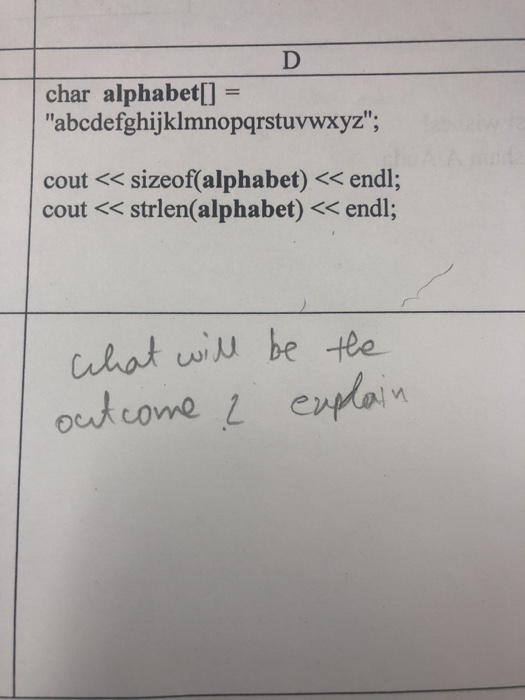 D
char alphabet[] =
"abcdefghijklmnopqrstuvwxyz";
cout << sizeof(alphabet) << endl;
cout << strlen(alphabet) << endl;
what will be the
outcome ? explain